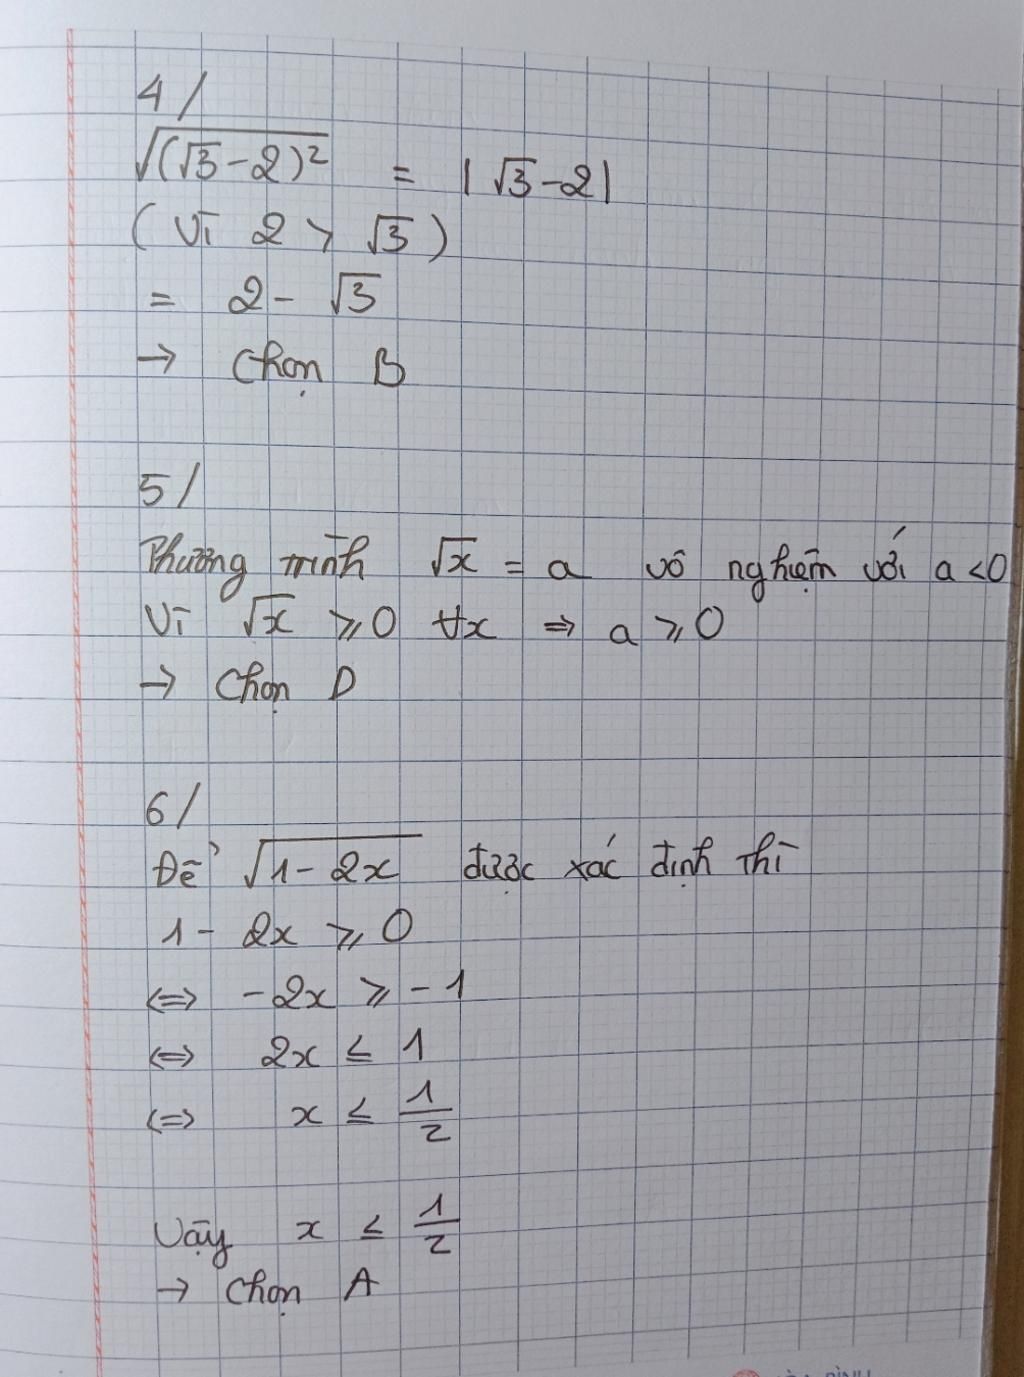 4/
√(√3-2)² = |√3-2|
(Vì 2 > √3)
= 2 - √3
→ Chọn B
5/
Phương trình √x = a vô nghiệm với a <0
Vì √x ⩾ 0 ∀x ⇒ a ⩾ 0
→ Chọn D
6/
Để √1-2x được xác định thì
1 - 2x ⩾ 0
⇔ -2x ⩾ -1
⇔ 2x ≤ 1
⇔ x ≤ 1/2
Vậy x ≤ 1/2
→ Chọn A